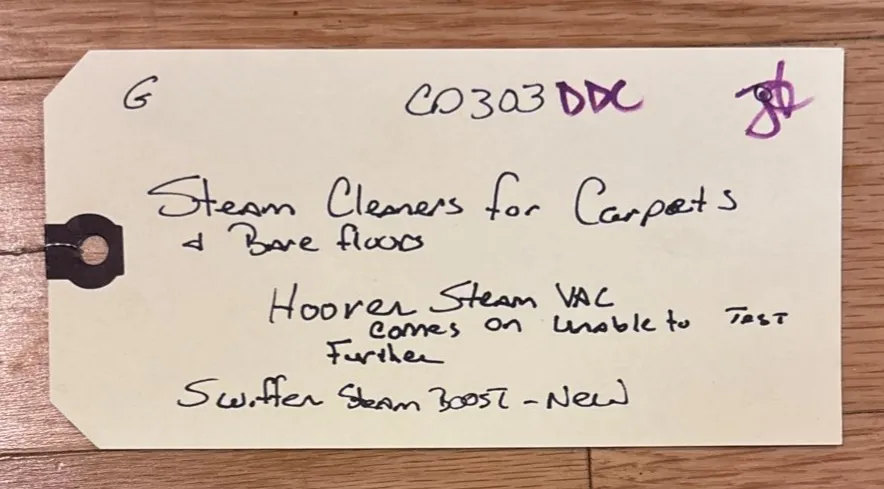 G CD303 DDC
Steam Cleaners for Carpets
& Bare floors
Hoover Steam VAC
comes on unable to TEST
Further
Swiffer Steam BOOST - New